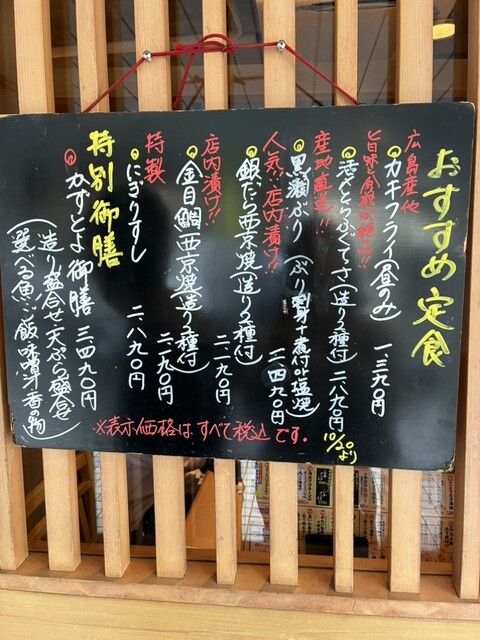 おすすめ定食
広島産他
旨味と食感が絶品!!
カキフライ(昼のみ) 一、三九〇円
活〆とらふぐてっさ(造り2種付) 二、八九〇円
10/20より
産地直送!!
黒瀬ぶり(ぶり刺身+煮付or塩焼) 二、四九〇円
人気!!店内漬け!!
銀だら西京焼(造り2種付) 二、二九〇円
店内漬け!!
金目鯛西京焼(造り2種付) 二、二九〇円
特製
にぎりすし 二、八九〇円
特別御膳
かずとよ御膳 三、四九〇円
(造り盛合せ・天ぷら盛合せ
選べる魚・ご飯・味噌汁・香の物)
※表示価格はすべて税込です。